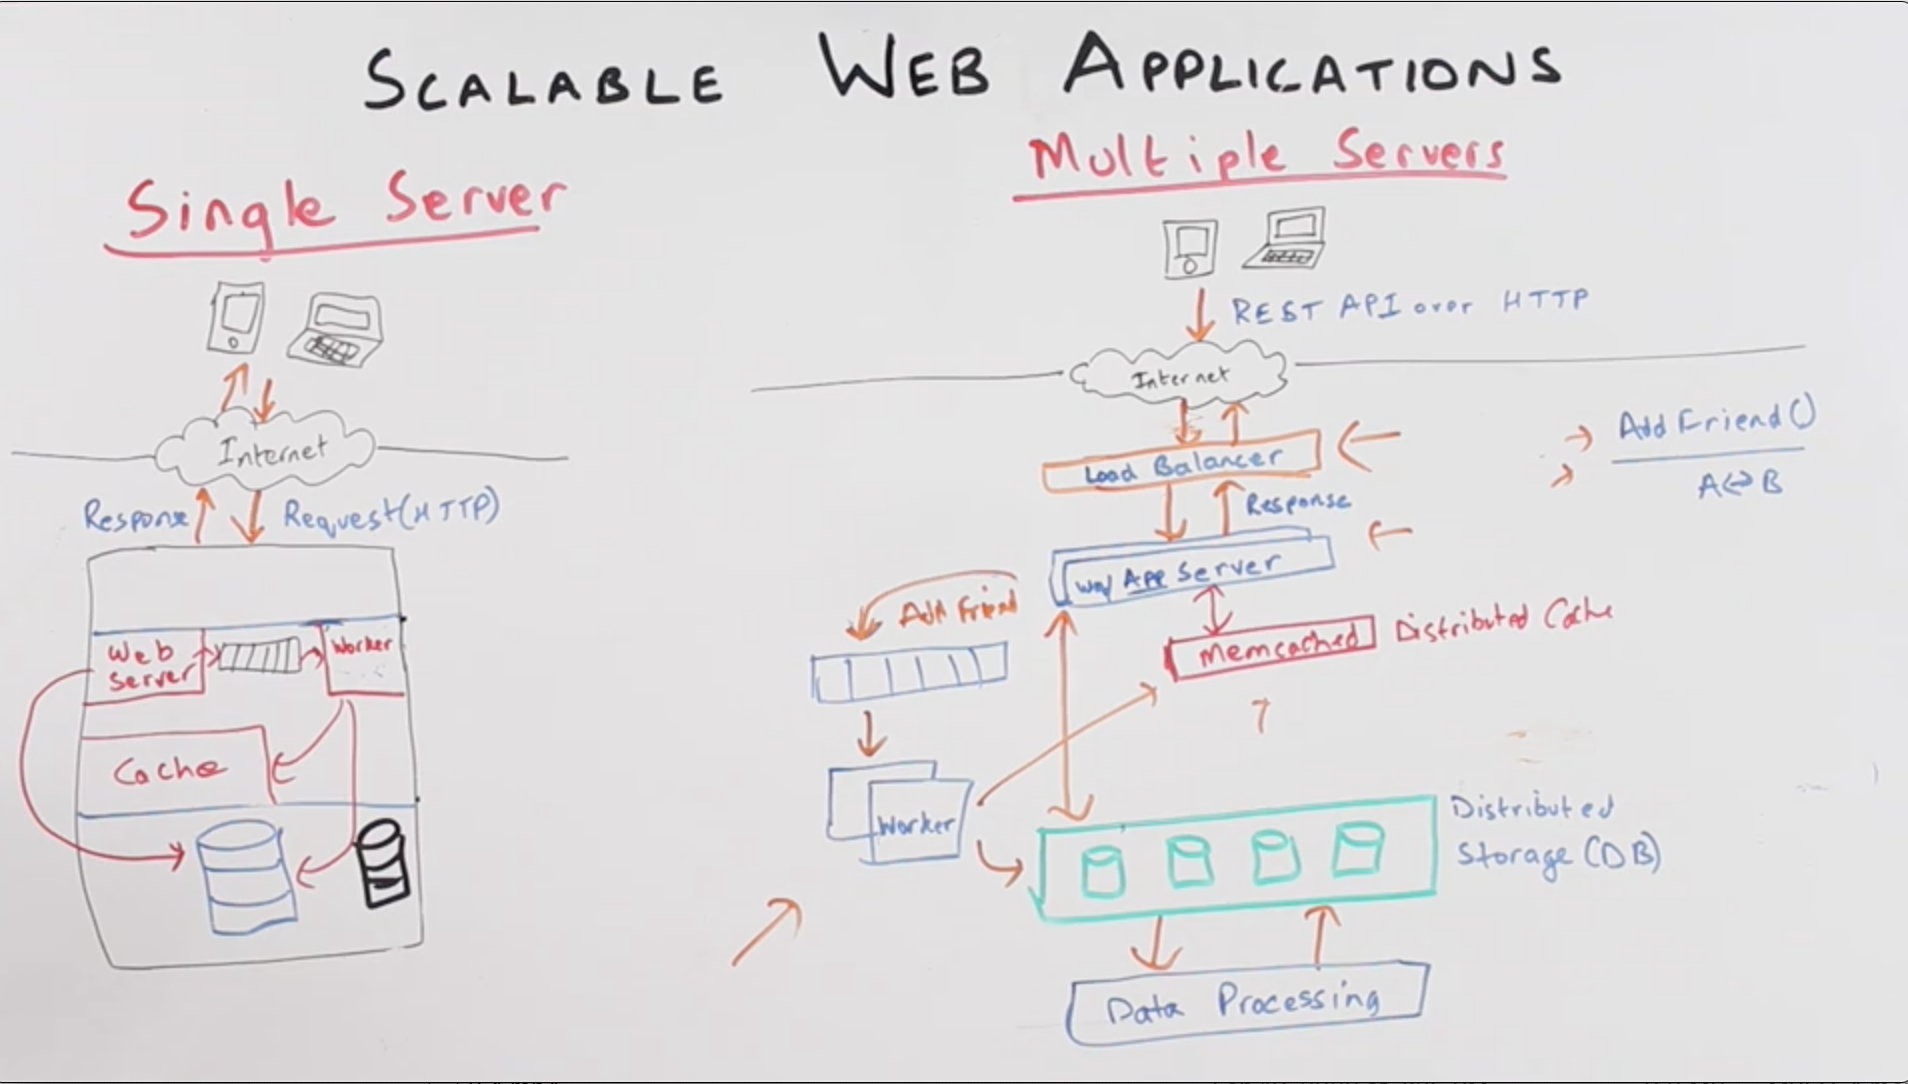 SCALABLE WEB APPLICATIONS
Single Server
Internet
Response
Request(HTTP)
Web
Server
Worker
Cache
Multiple Servers
REST API over HTTP
Internet
Load Balancer
Response
App Server
Add Friend
Memcached
Distributed Cache
Worker
Distributed
Storage (DB)
Data Processing
Add Friend()
A⇔B